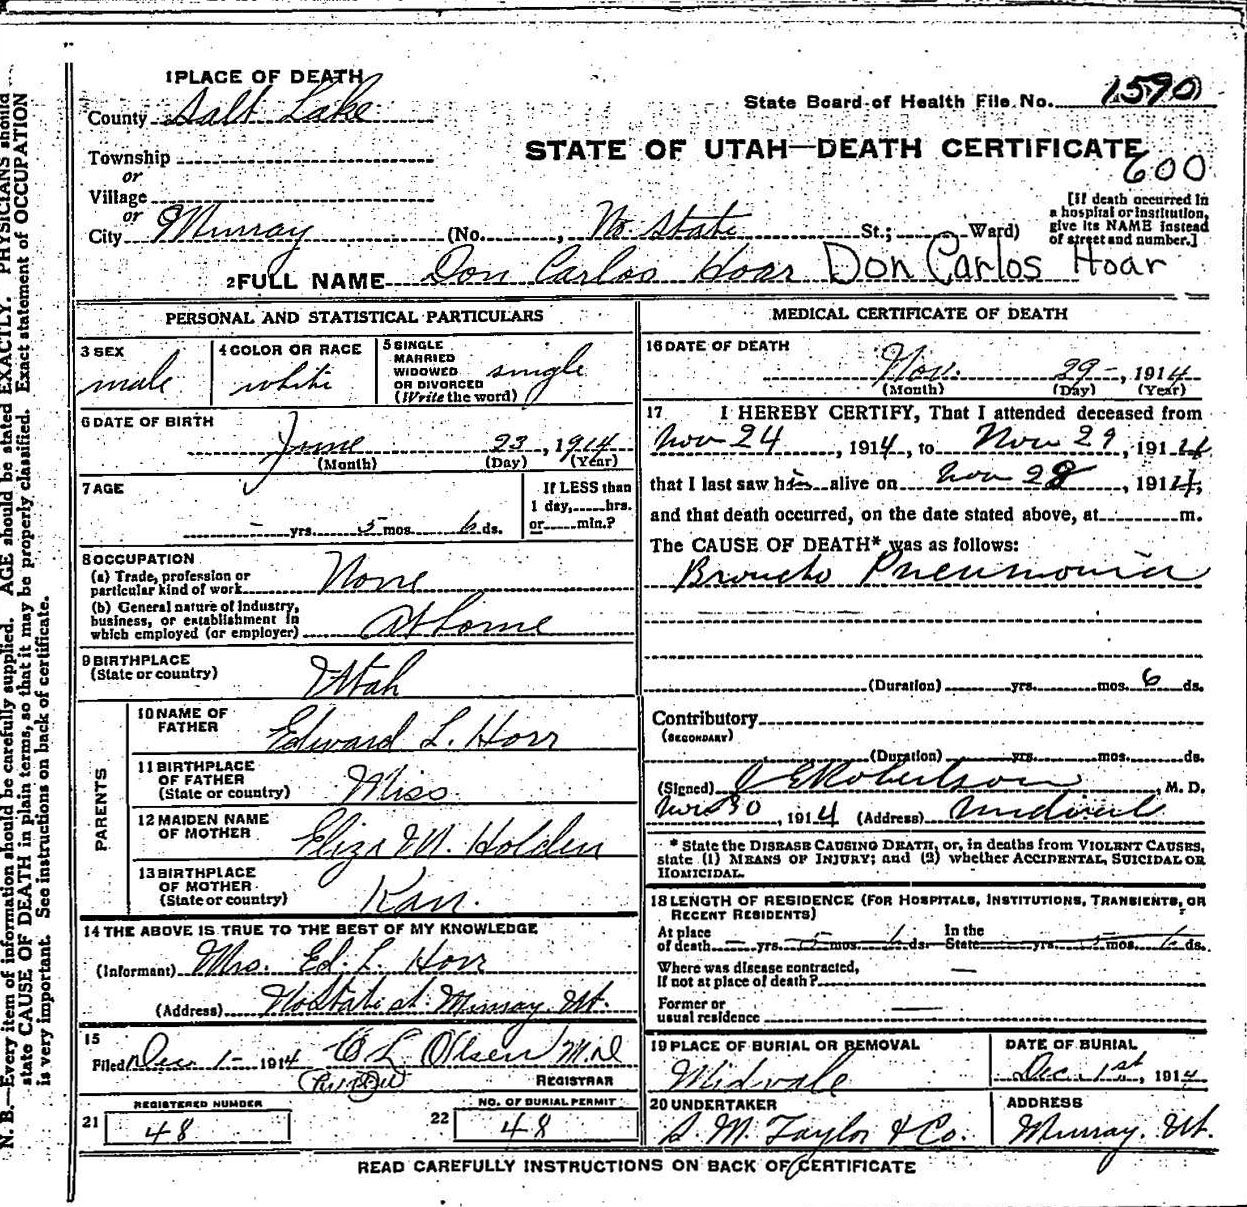 1 PLACE OF DEATH
County Salt Lake
State Board of Health File No. 1590
Township
STATE OF UTAH—DEATH CERTIFICATE
600
or
Village
or
City Murray (No. , No State St.; Ward)
[If death occurred in a hospital or institution, give its NAME instead of street and number.]
2 FULL NAME Don Carlos Hoar Don Carlos Hoar
PERSONAL AND STATISTICAL PARTICULARS
3 SEX male
4 COLOR OR RACE white
5 SINGLE MARRIED WIDOWED OR DIVORCED (Write the word) single
6 DATE OF BIRTH
June 23, 1914
(Month) (Day) (Year)
7 AGE
- yrs. 5 mos. 6 ds.
If LESS than 1 day, hrs. or min.?
8 OCCUPATION
(a) Trade, profession or particular kind of work None
(b) General nature of industry, business, or establishment in which employed (or employer) At Home
9 BIRTHPLACE (State or country) Utah
PARENTS
10 NAME OF FATHER Edward L. Horr
11 BIRTHPLACE OF FATHER (State or country) Miss.
12 MAIDEN NAME OF MOTHER Eliza M. Holden
13 BIRTHPLACE OF MOTHER (State or country) Kan.
14 THE ABOVE IS TRUE TO THE BEST OF MY KNOWLEDGE
(Informant) Mrs. Ed. L. Horr
(Address) No State st. Murray Ut.
15
Filed Dec 1- 1914 C L Olsen M.D
REGISTRAR
REGISTERED NUMBER
21 48
NO. OF BURIAL PERMIT
22 48
MEDICAL CERTIFICATE OF DEATH
16 DATE OF DEATH
Nov. 29-, 1914
(Month) (Day) (Year)
17 I HEREBY CERTIFY, That I attended deceased from
Nov 24, 1914, to Nov 29, 1914
that I last saw him alive on Nov 28, 1914,
and that death occurred, on the date stated above, at m.
The CAUSE OF DEATH* was as follows:
Broncho Pneumonia
(Duration) yrs. mos. 6 ds.
Contributory
(SECONDARY)
(Duration) yrs. mos. ds.
(Signed) J E Robertson, M. D.
Nov 30, 1914 (Address) Midvale
* State the DISEASE CAUSING DEATH, or, in deaths from VIOLENT CAUSES,
state (1) MEANS OF INJURY; and (2) whether ACCIDENTAL, SUICIDAL OR
HOMICIDAL.
18 LENGTH OF RESIDENCE (FOR HOSPITALS, INSTITUTIONS, TRANSIENTS, OR
RECENT RESIDENTS)
At place of death - yrs. 5 mos. 6 ds. In the State - yrs. 5 mos. 6 ds.
Where was disease contracted, If not at place of death? —
Former or usual residence —
19 PLACE OF BURIAL OR REMOVAL
Midvale
DATE OF BURIAL
Dec. 1st, 1914
20 UNDERTAKER
S. M. Taylor & Co.
ADDRESS
Murray, Ut.
READ CAREFULLY INSTRUCTIONS ON BACK OF CERTIFICATE
N. B.—Every item of information should be carefully supplied. AGE should be stated EXACTLY. PHYSICIANS should
state CAUSE OF DEATH in plain terms, so that it may be properly classified. Exact statement of OCCUPATION
is very important. See instructions on back of certificate.